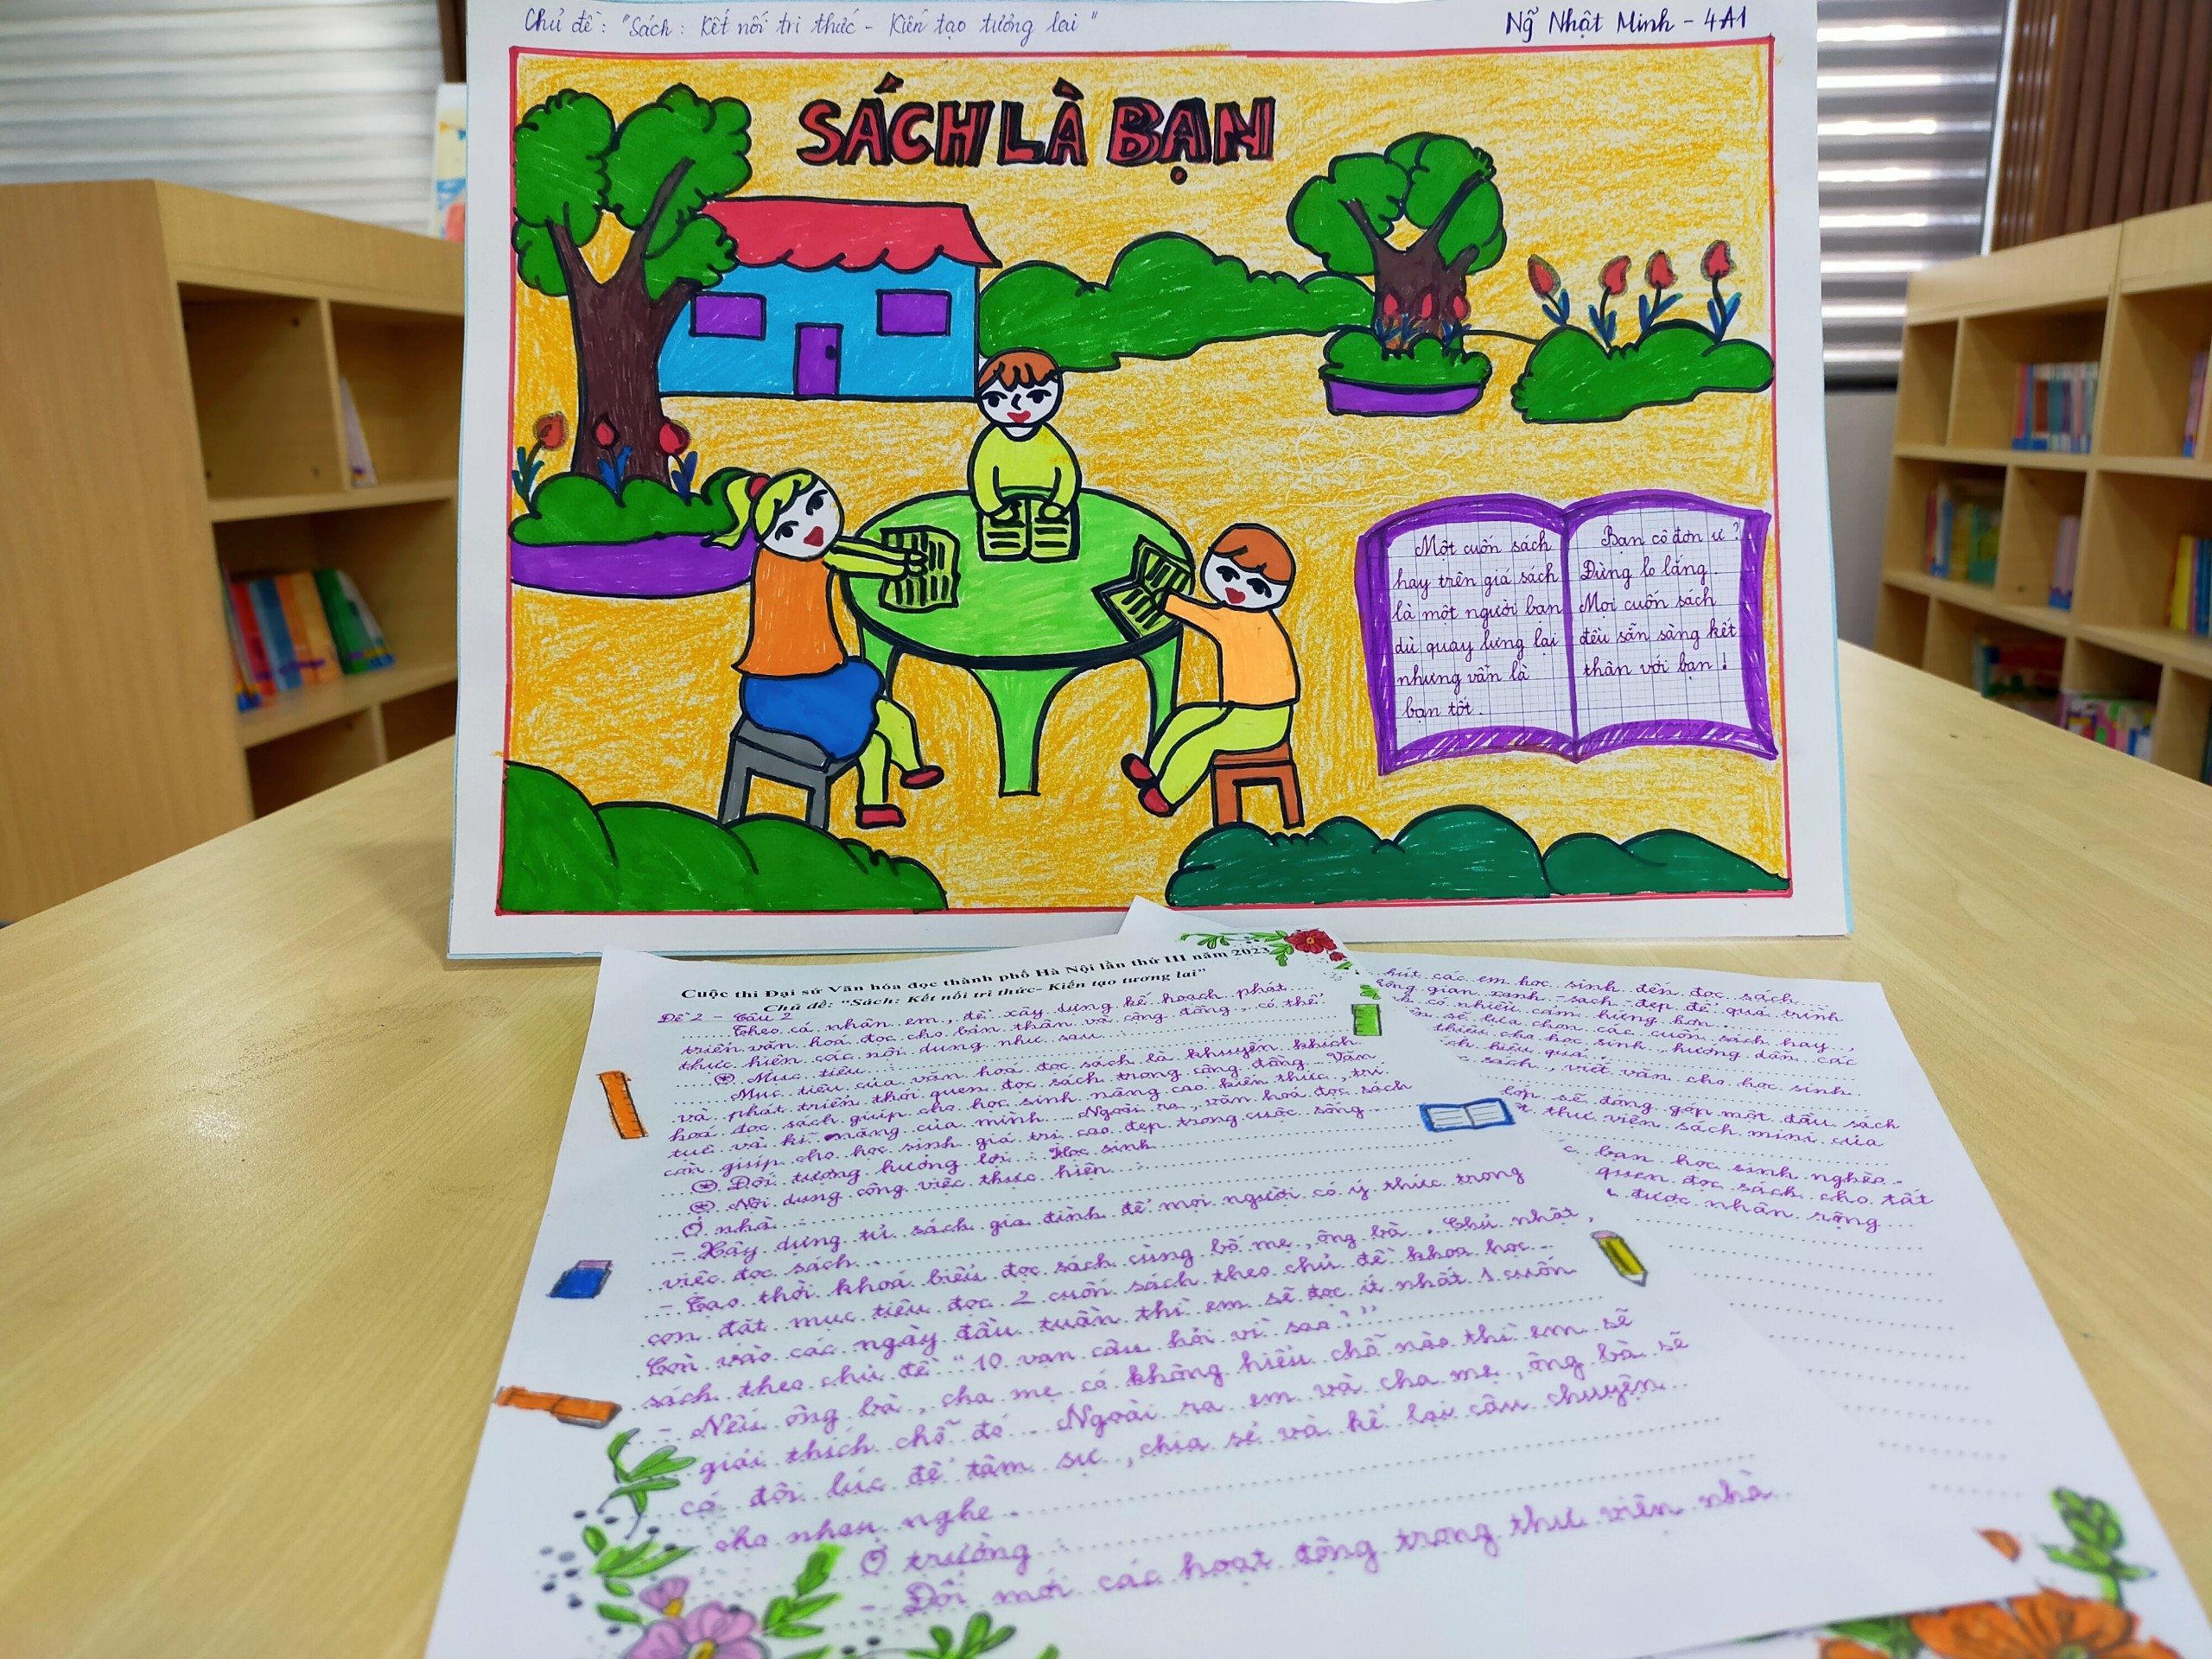 Chủ đề: "Sách: Kết nối tri thức - Kiến tạo tương lai"
Ng̃ Nhật Minh - 4A1
SÁCH LÀ BẠN
Một cuốn sách
hay trên giá sách
là một người bạn
dù quay lưng lại
nhưng vẫn là
bạn tốt.
Bạn cô đơn ư?
Đừng lo lắng.
Mọi cuốn sách
đều sẵn sàng kết
thân với bạn!
Cuộc thi Đại sứ Văn hóa đọc thành phố Hà Nội lần thứ III năm 2023
Chủ đề: "Sách: Kết nối tri thức- Kiến tạo tương lai"
Đề 2 - Câu 2
Theo cá nhân em, để xây dựng kế hoạch phát
triển văn hoá đọc cho bản thân và cộng đồng, có thể
thực hiện các nội dung như sau
* Mục tiêu:
Mục tiêu của văn hoá đọc sách là khuyến khích
và phát triển thói quen đọc sách trong cộng đồng. Văn
hoá đọc sách giúp cho học sinh nâng cao kiến thức, trí
tuệ và kĩ năng của mình. Ngoài ra, văn hoá đọc sách
còn giúp cho học sinh giá trị cao đẹp trong cuộc sống.
* Đối tượng hưởng lợi: Học sinh
* Nội dung công việc thực hiện:
Ở nhà:
- Xây dựng tủ sách gia đình để mọi người có ý thức trong
việc đọc sách.
- Tạo thời khoá biểu đọc sách cùng bố mẹ, ông bà. Chủ nhật,
con đặt mục tiêu đọc 2 cuốn sách theo chủ đề khoa học.
Còn vào các ngày đầu tuần thì em sẽ đọc ít nhất 1 cuốn
sách theo chủ đề "10 vạn câu hỏi vì sao?"
- Nếu ông bà, cha mẹ có không hiểu chỗ nào thì em sẽ
giải thích chỗ đó. Ngoài ra em và cha mẹ, ông bà sẽ
có đôi lúc để tâm sự, chia sẻ và kể lại câu chuyện
cho nhau nghe.
Ở trường:
- Đổi mới các hoạt động trong thư viện nhà
hút các em học sinh đến đọc sách
gian xanh - sạch - đẹp để quá trình
có nhiều cảm hứng hơn.
sẽ lựa chọn các cuốn sách hay,
thiệu cho học sinh, hướng dẫn các
hiệu quả.
sách, viết văn cho học sinh
lớp sẽ đóng góp một đầu sách
thư viện sách mini của
bạn học sinh nghèo.
quen đọc sách cho tất
được nhân rộng